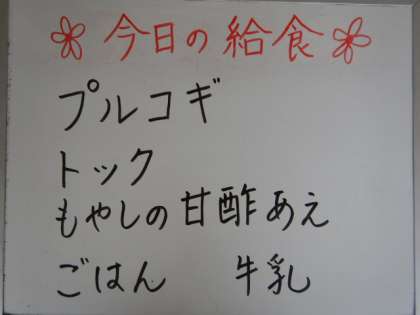 今日の給食
プルコギ
トック
もやしの甘酢あえ
ごはん 牛乳